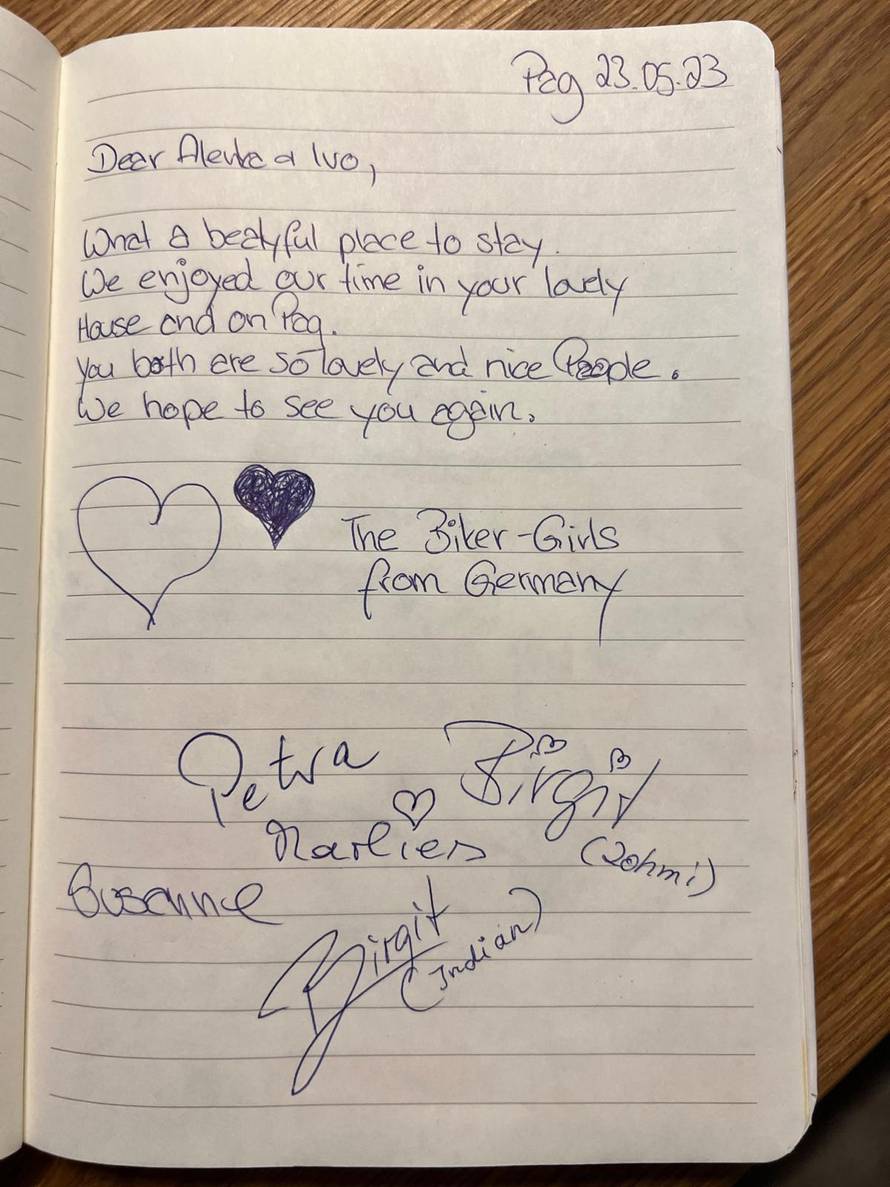 Pag 23.05.23
Dear Alenka & Ivo,
What a beatyful place to stay.
We enjoyed our time in your lovely
House and on Pag.
You both are so lovely and nice People.
We hope to see you again.
The Biker-Girls
from Germany
Petra Birgit
Marlies (Rohmi)
Susanne
Birgit
(Indian)